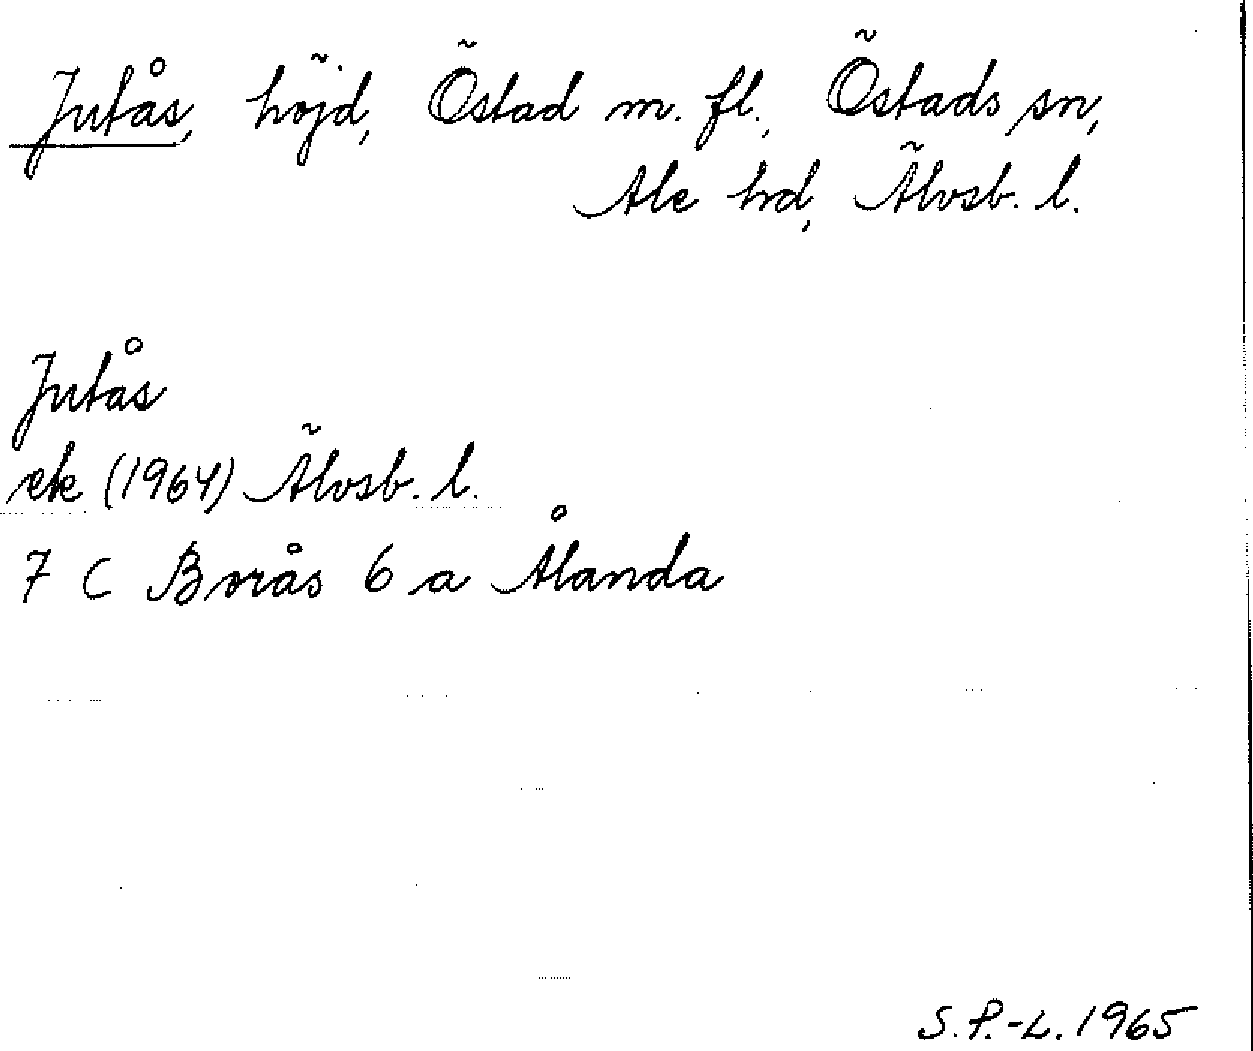 Jutås, höjd, Östad m. fl., Östads sn,
Ale hd, Älvsb. l.
Jutås
ek (1964) Älvsb. l.
7 C Borås 6 a Ålanda
S. P.-L. 1965